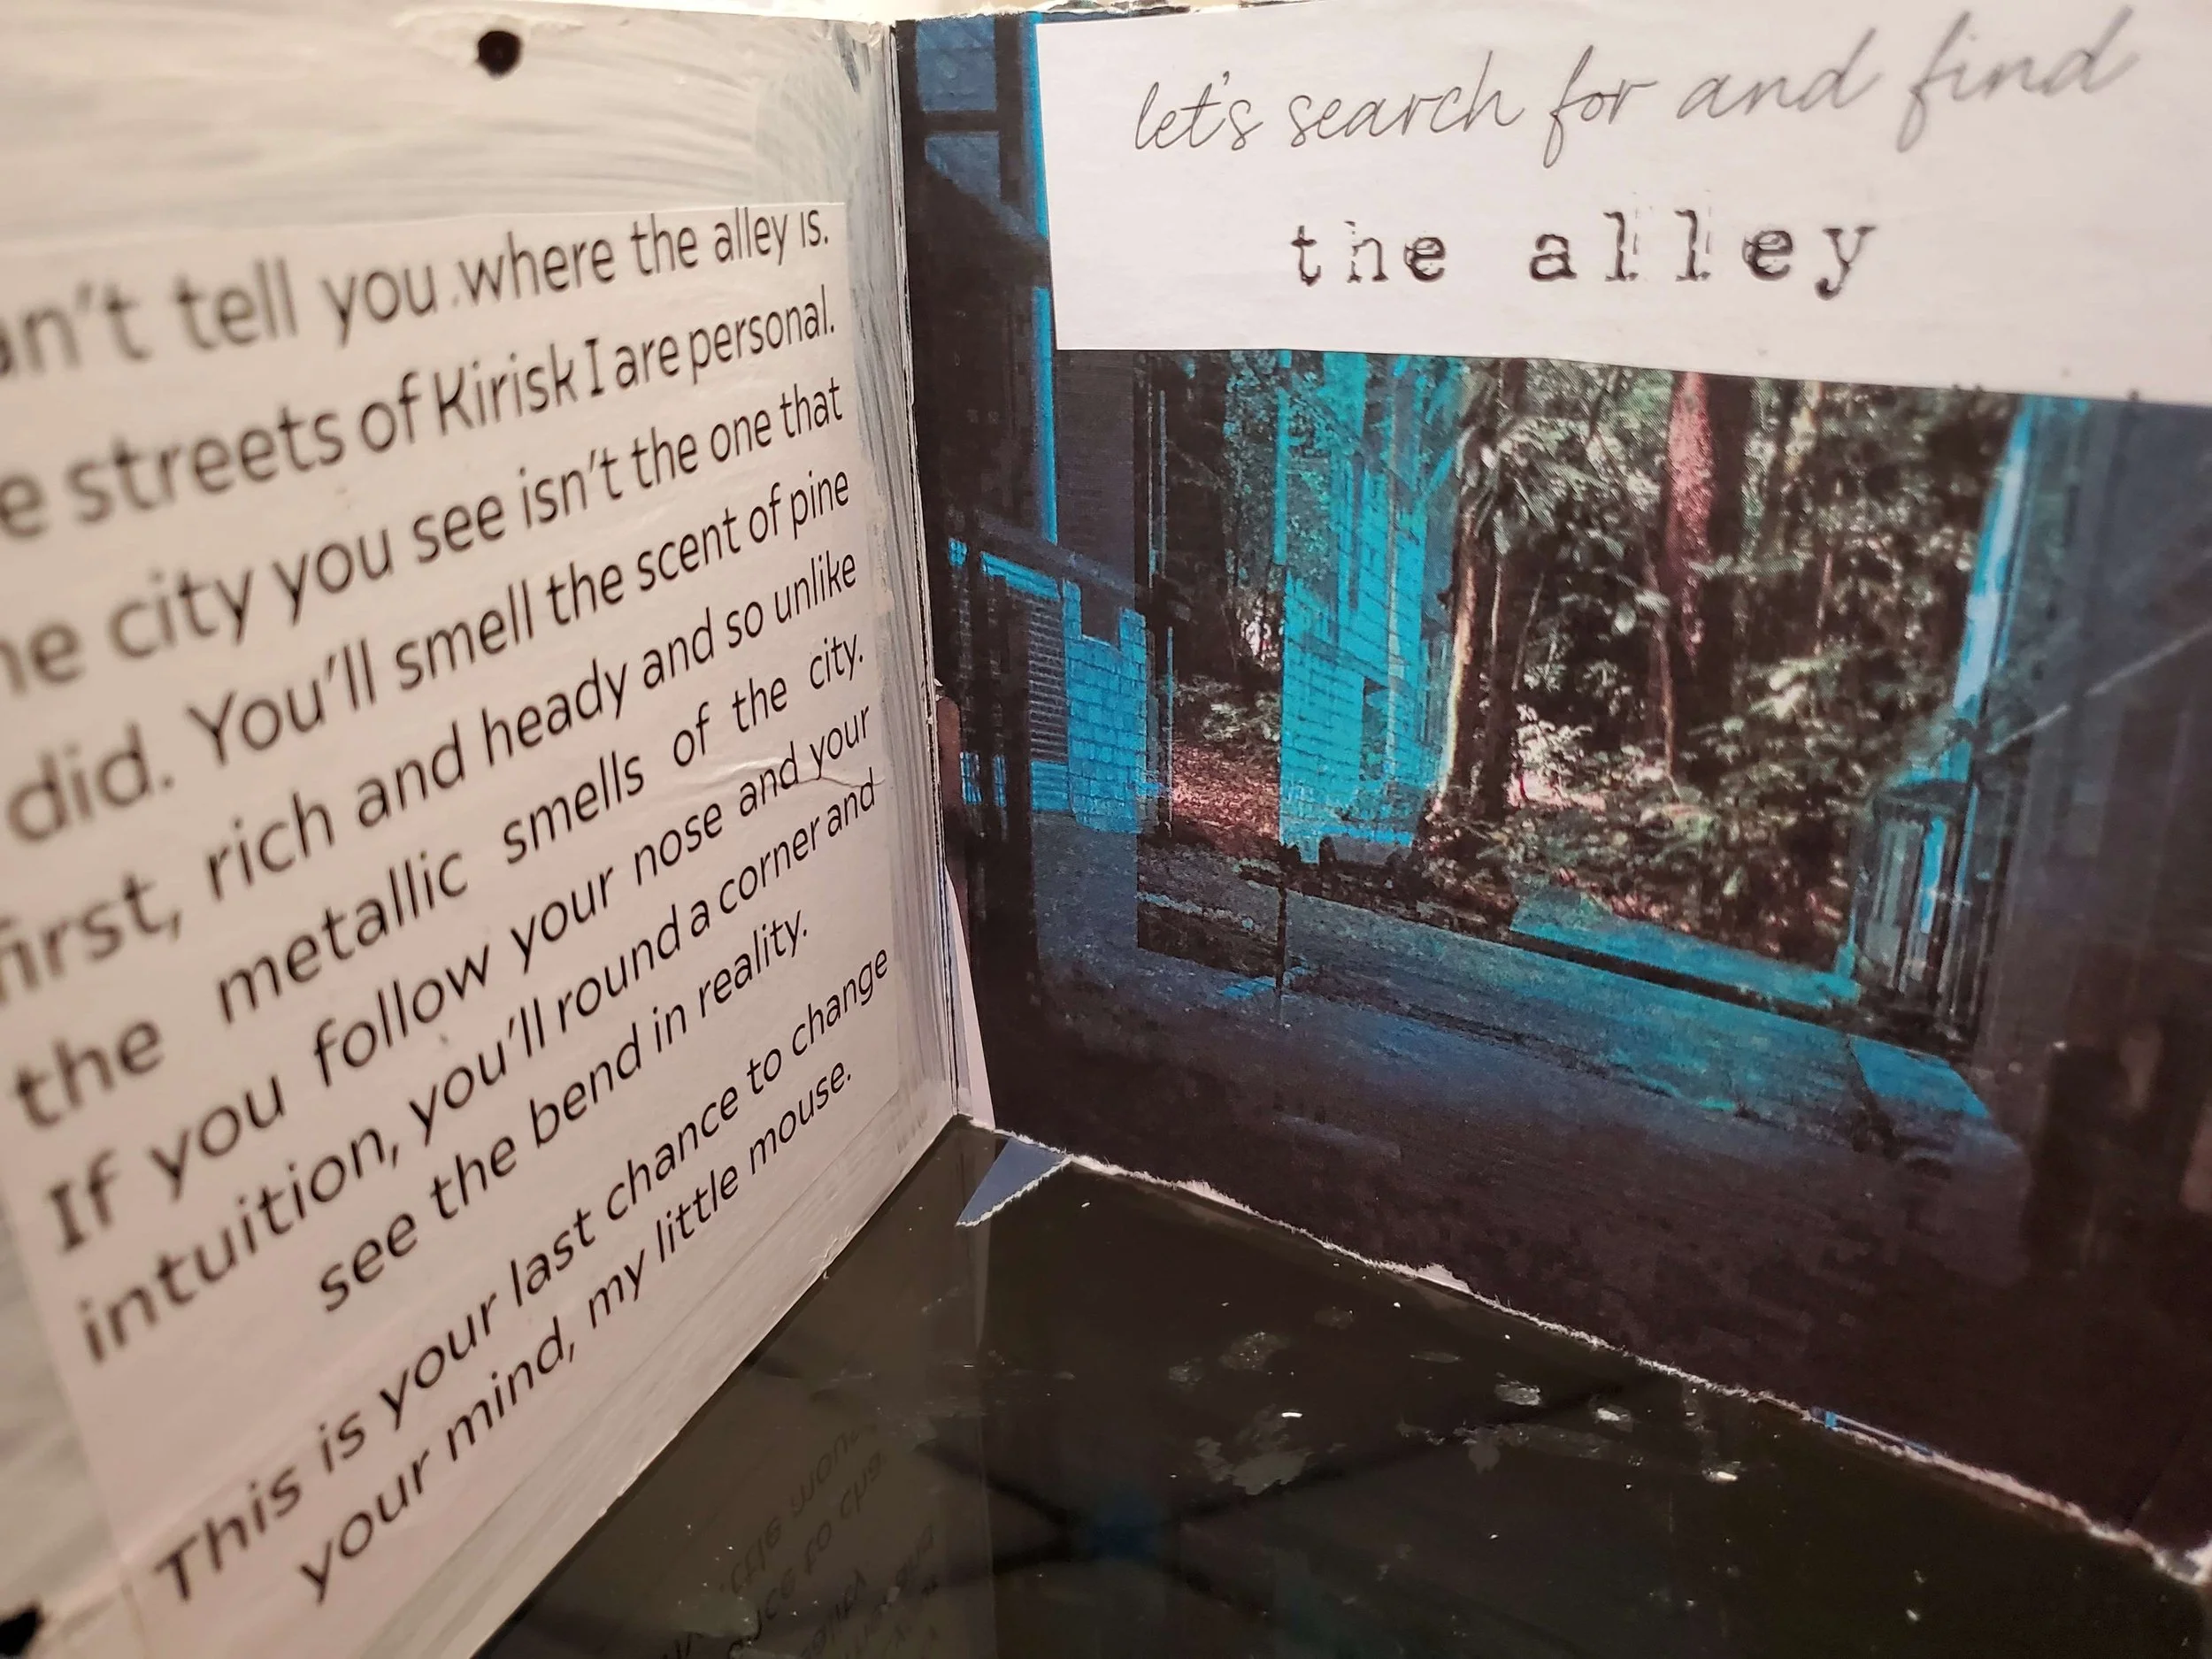 an't tell you where the alley is.
e streets of Kirisk I are personal.
he city you see isn't the one that
did. You'll smell the scent of pine
first, rich and heady and so unlike
the metallic smells of the city.
If you follow your nose and your
intuition, you'll round a corner and
see the bend in reality.
This is your last chance to change
your mind, my little mouse.
let's search for and find
the alley